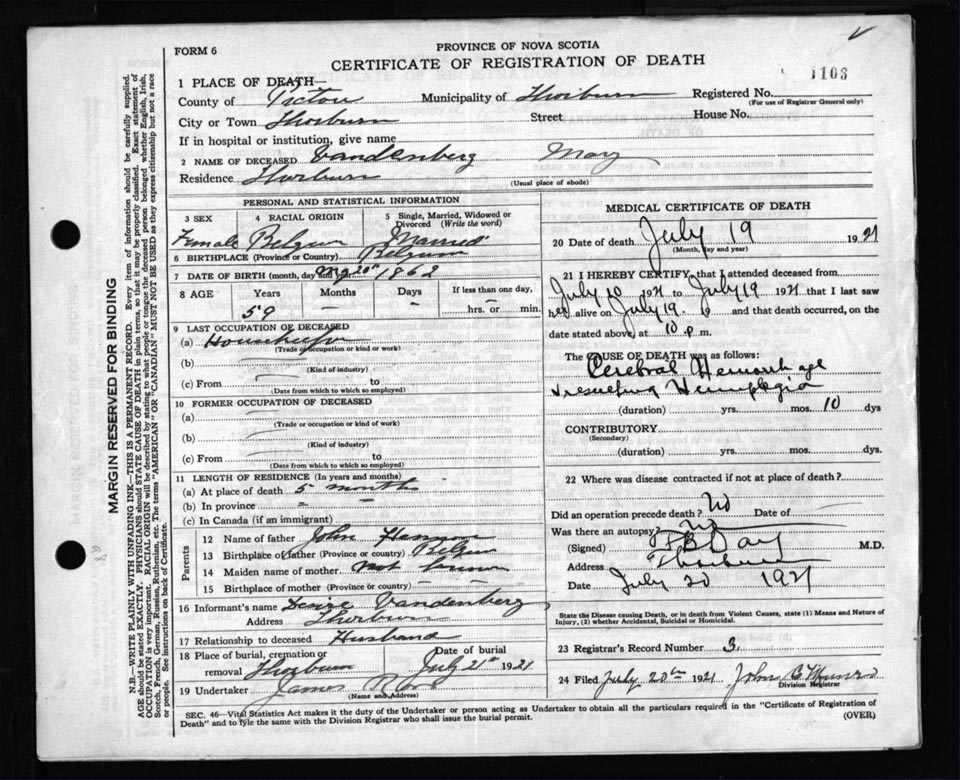 FORM 6
PROVINCE OF NOVA SCOTIA
CERTIFICATE OF REGISTRATION OF DEATH
1103
1 PLACE OF DEATH—
County of Pictou Municipality of Thorburn Registered No.
(For use of Registrar General only)
City or Town Thorburn Street House No.
If in hospital or institution, give name
2 NAME OF DECEASED Vandenberg Mary
Residence Thorburn
(Usual place of abode)
PERSONAL AND STATISTICAL INFORMATION
3 SEX 4 RACIAL ORIGIN 5 Single, Married, Widowed or Divorced (Write the word)
Female Belgium Married
6 BIRTHPLACE (Province or Country) Belgium
7 DATE OF BIRTH (month, day and year) 20th 1862
8 AGE Years Months Days If less than one day,
59 — — hrs. or min.
9 LAST OCCUPATION OF DECEASED
(a)
(Trade or occupation or kind of work)
(b)
(Kind of industry)
(c) From to
(Date from which to which so employed)
10 FORMER OCCUPATION OF DECEASED
(a)
(Trade or occupation or kind of work)
(b)
(Kind of industry)
(c) From to
(Date from which to which so employed)
11 LENGTH OF RESIDENCE (In years and months)
(a) At place of death 5 months
(b) In province
(c) In Canada (if an immigrant)
Parents
12 Name of father John
13 Birthplace of father (Province or country) Belgium
14 Maiden name of mother not known
15 Birthplace of mother (Province or country) — —
16 Informant's name Vandenberg
Address Thorburn
17 Relationship to deceased Husband
18 Place of burial, cremation or removal Thorburn Date of burial July 21st 1921
19 Undertaker James
(Name and Address)
MEDICAL CERTIFICATE OF DEATH
20 Date of death July 19 1921
(Month, day and year)
21 I HEREBY CERTIFY, that I attended deceased from
July 10 1921 to July 19 1921 that I last saw
her alive on July 19 19 and that death occurred, on the
date stated above, at 10 p m.
The CAUSE OF DEATH was as follows:
Cerebral Hemorrhage
resulting Hemiplegia
(duration) yrs. mos. 10 dys
CONTRIBUTORY
(Secondary)
(duration) yrs. mos. dys.
22 Where was disease contracted if not at place of death?
Did an operation precede death? No Date of
Was there an autopsy? No
(Signed) Day M.D.
Address Thorburn
Date July 20 1921
State the Disease causing Death, or in death from Violent Causes, state (1) Means and Nature of
Injury, (2) whether Accidental, Suicidal or Homicidal.
23 Registrar's Record Number 3.
24 Filed July 20th 1921 John B Munro
Division Registrar
SEC. 46—Vital Statistics Act makes it the duty of the Undertaker or person acting as Undertaker to obtain all the particulars required in the "Certificate of Registration of
Death" and to fyle the same with the Division Registrar who shall issue the burial permit. (OVER)
MARGIN RESERVED FOR BINDING
N.B.—WRITE PLAINLY WITH UNFADING INK—THIS IS A PERMANENT RECORD. Every item of information should be carefully supplied.
AGE should be stated EXACTLY. PHYSICIANS should STATE CAUSE OF DEATH in plain terms, so that it may be properly classified. Exact statement of
OCCUPATION is very important. RACIAL ORIGIN will be described by stating to what people or tongue the deceased person belonged whether English, Irish,
Scotch, French, German, Russian, Ruthenian, etc. The terms "AMERICAN" or "CANADIAN" MUST NOT BE USED as they express citizenship but not a race
or people. See instructions on back of Certificate.